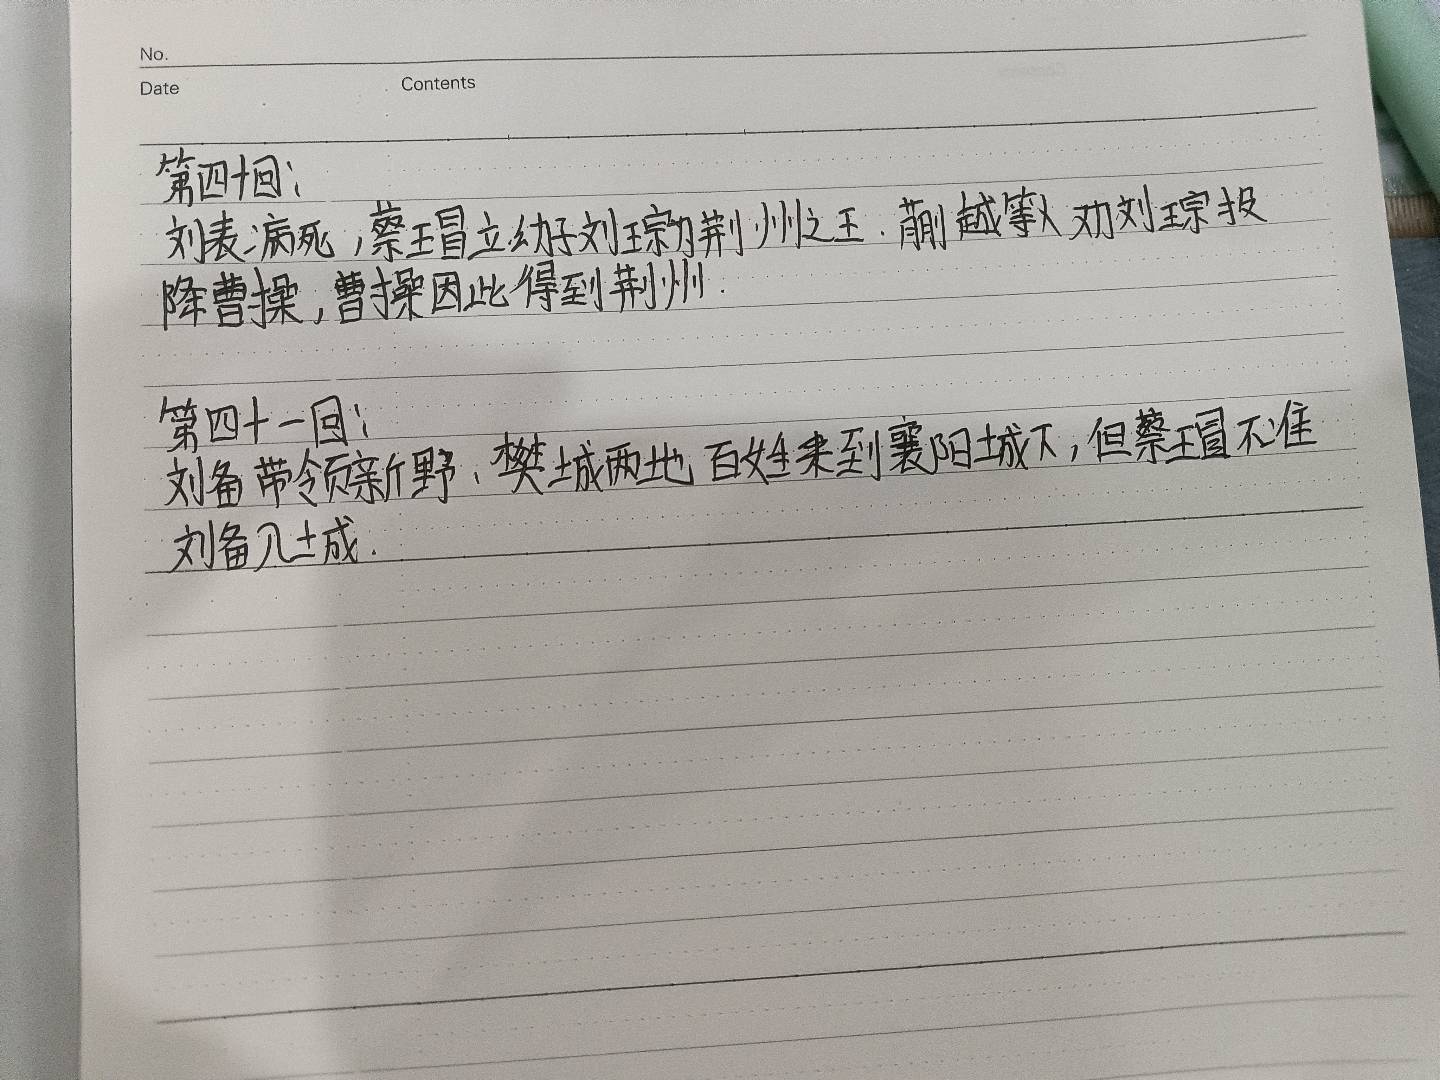 No.
Date Contents
第四十回：
刘表病死，蔡瑁立幼子刘琮为荆州之主．蒯越等人劝刘琮投
降曹操，曹操因此得到荆州．
第四十一回：
刘备带领新野、樊城两地百姓来到襄阳城下，但蔡瑁不准
刘备入城．